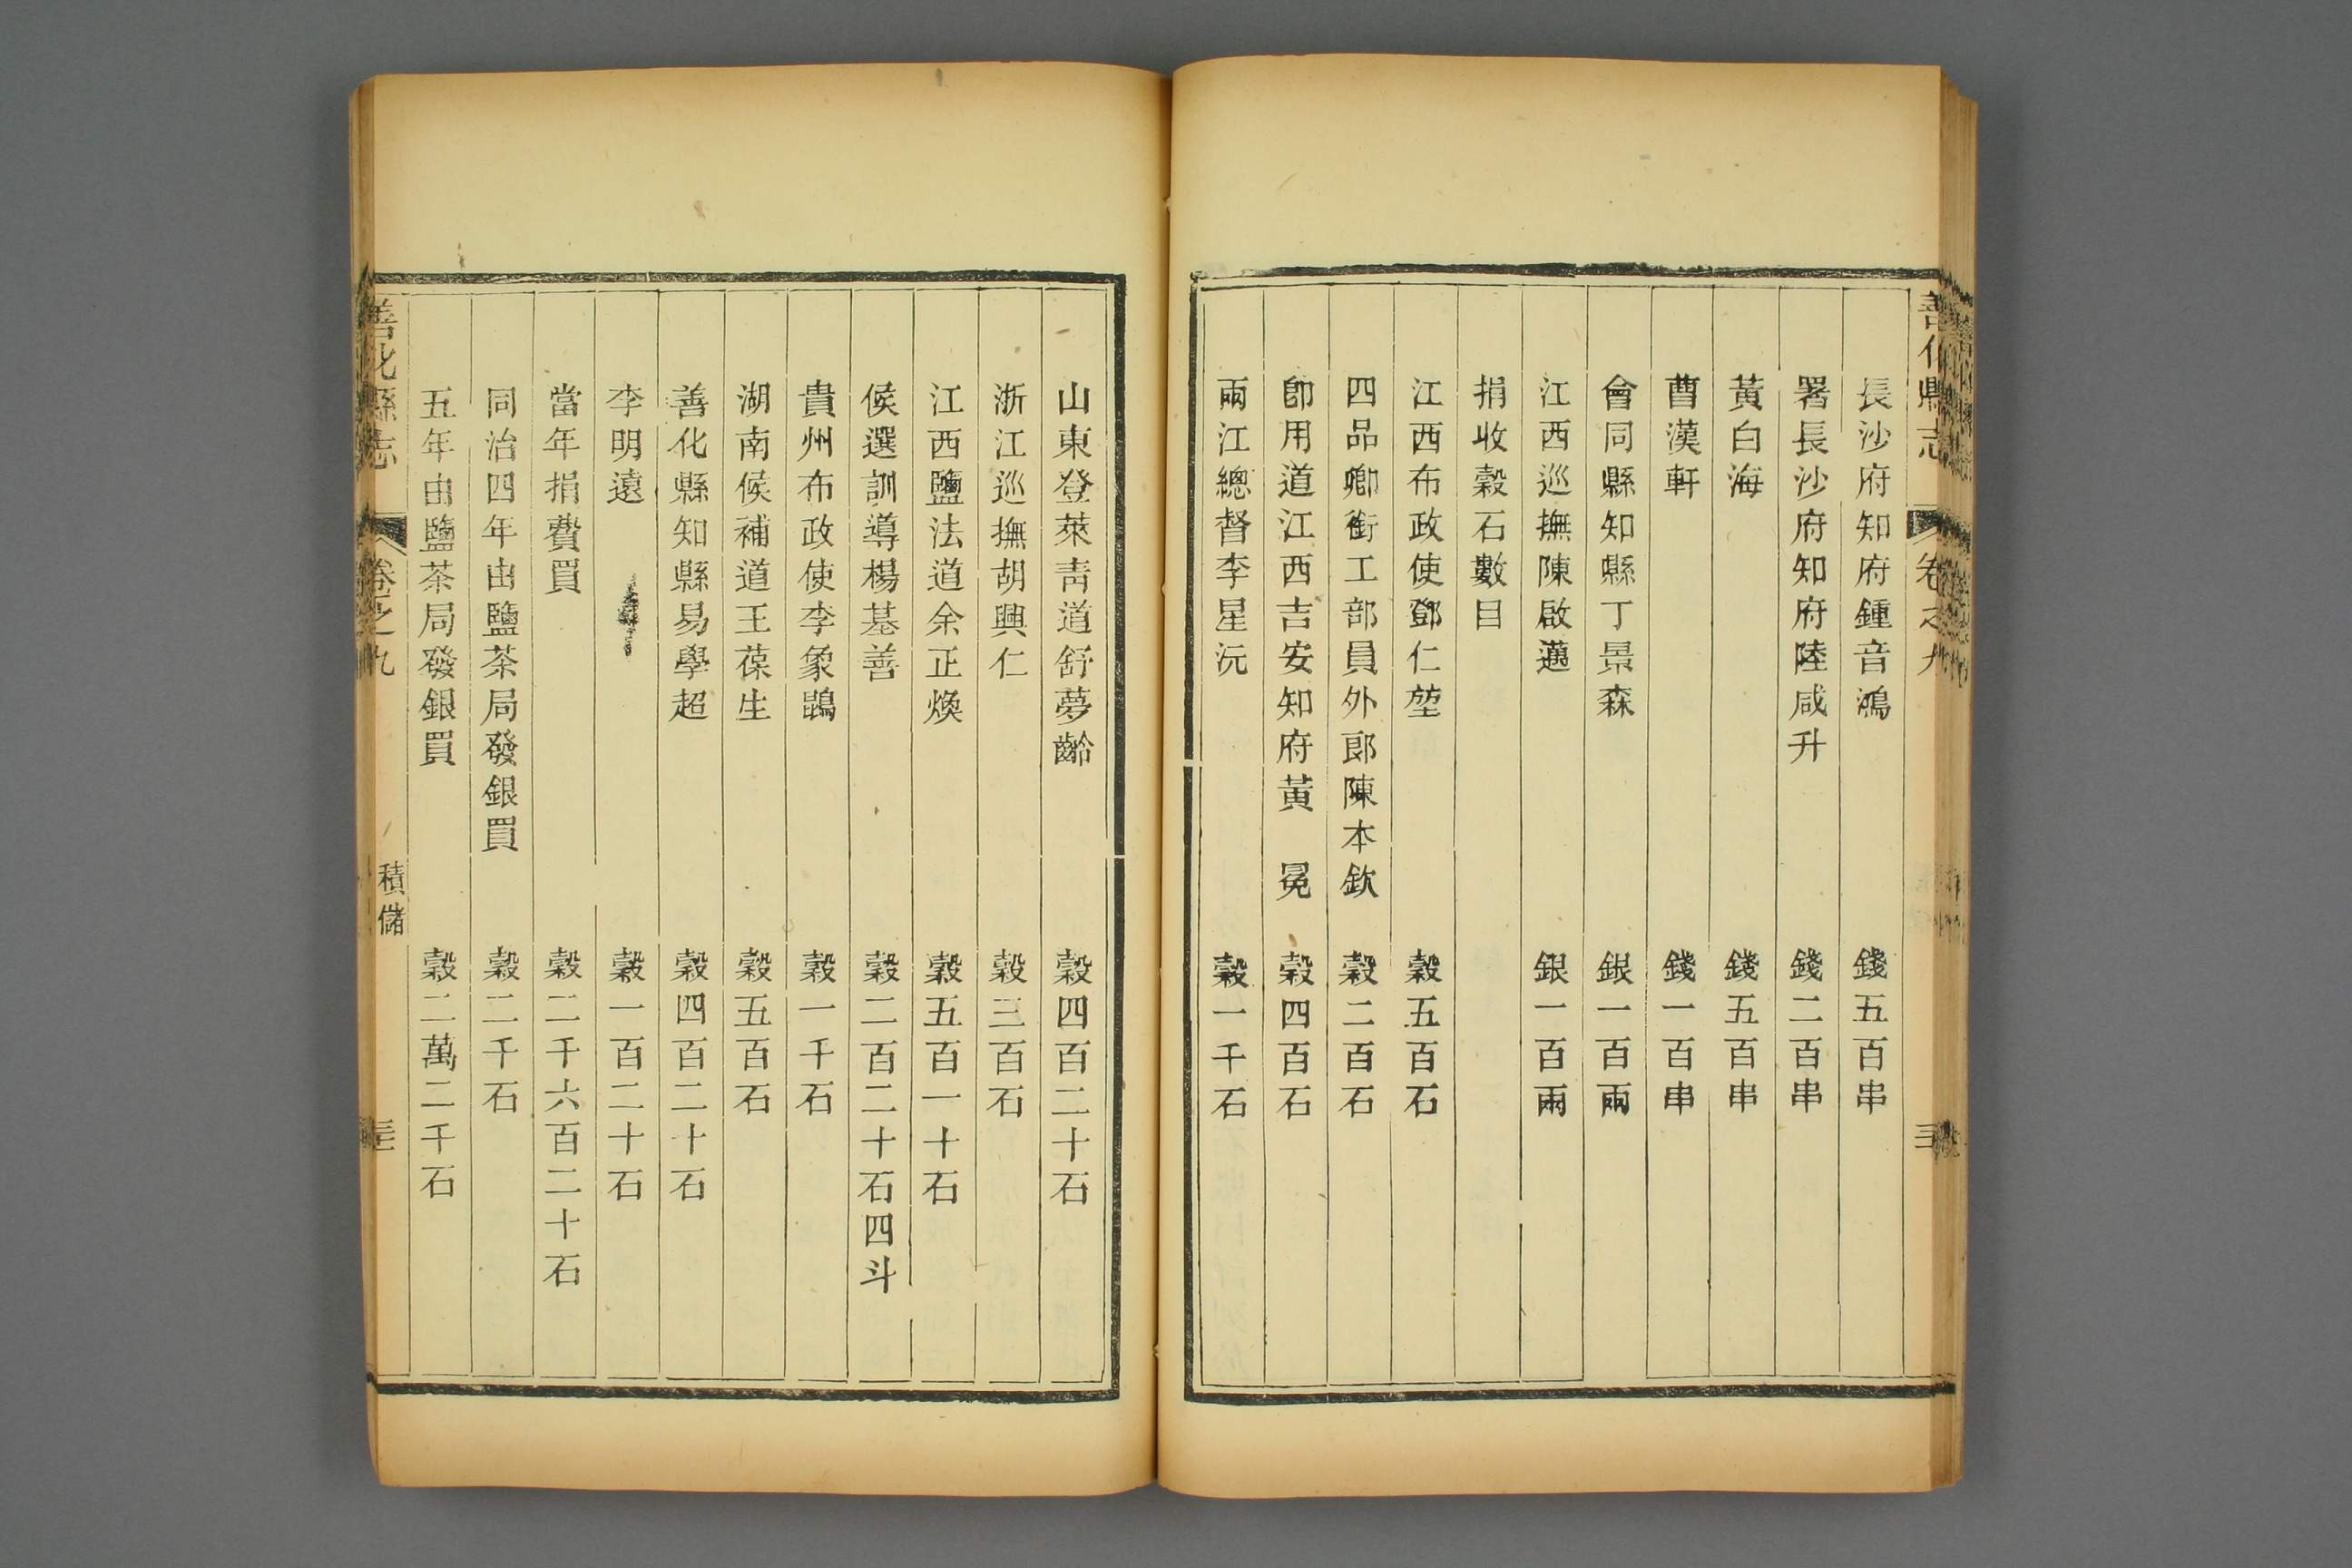 善化縣志 卷之九
長沙府知府鍾音鴻 錢五百串
署長沙府知府陸咸升 錢二百串
黃白海 錢五百串
曹漢軒 錢一百串
會同縣知縣丁景森 銀一百兩
江西巡撫陳啟邁 銀一百兩
捐收穀石數目
江西布政使鄧仁堃 穀五百石
四品卿銜工部員外郎陳本欽 穀二百石
卽用道江西吉安知府黃 冕 穀四百石
兩江總督李星沅 穀一千石
山東登萊靑道舒夢齡 穀四百二十石
浙江巡撫胡興仁 穀三百石
江西鹽法道余正煥 穀五百一十石
候選訓導楊基善 穀二百二十石四斗
貴州布政使李象鵾 穀一千石
湖南候補道王葆生 穀五百石
善化縣知縣易學超 穀四百二十石
李明遠 穀一百二十石
當年捐費買 穀二千六百二十石
同治四年由鹽茶局發銀買 穀二千石
五年由鹽茶局發銀買 穀二萬二千石
善化縣志 卷之九 積儲